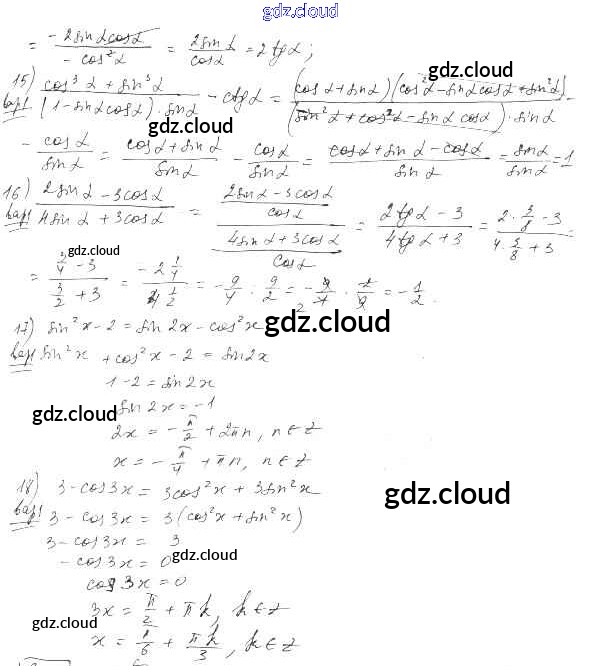 gdz.cloud
= -2sinαcosα / -cos²α = 2sinα / cosα = 2tgα;
15) вар1 cos³α + sin³α / (1-sinαcosα)·sinα - ctgα = (cosα+sinα)(cos²α-sinαcosα+sin²α) / (sin²α+cos²α-sinαcosα)·sinα -
gdz.cloud
- cosα / sinα = cosα+sinα / sinα - cosα / sinα = cosα+sinα-cosα / sinα = sinα / sinα = 1
gdz.cloud
16) вар1 2sinα-3cosα / 4sinα+3cosα = 2sinα-3cosα / cosα / 4sinα+3cosα / cosα = 2tgα-3 / 4tgα+3 = 2·3/8-3 / 4·3/8+3 =
gdz.cloud
= 3/4-3 / 3/2+3 = -2 1/4 / 4 1/2 = -9/4 : 9/2 = -9/4 · 2/9 = -1/2.
17) sin²x-2 = sin2x-cos²x
gdz.cloud
вар1 sin²x + cos²x-2 = sin2x
1-2 = sin2x
sin2x = -1
gdz.cloud
2x = -π/2 + 2πn, n∈Z
x = -π/4 + πn, n∈Z
18) 3-cos3x = 3cos²x + 3sin²x
gdz.cloud
вар1 3-cos3x = 3(cos²x+sin²x)
3-cos3x = 3
-cos3x = 0
gdz.cloud
cos3x = 0
3x = π/2 + πk, k∈Z
gdz.cloud
x = π/6 + πk/3, k∈Z